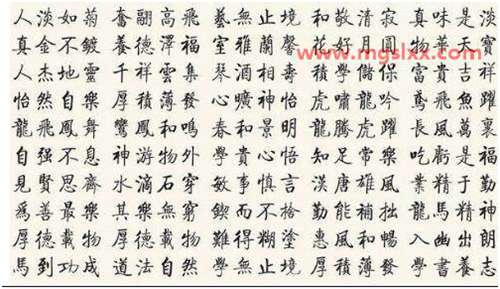 人淡如菊 奮翮高飛 藝無止境 和敬清寂 真味是淡
真金不鍍 養德澤福 室雅蘭馨 花好月圓 物華天寶
www.mgslxx.com
人杰地靈 千祥雲集 琴酒相壽 積學儲 富貴吉祥
怡然自樂 厚積薄發 心曠神怡 虎嘯龍吟 鳶飛魚躍
龍飛鳳舞 鸞鳳和鳴 春和景明 龍騰虎躍 長風萬裏
自强不息 神游物外 學貴心悟 知足常樂 吃虧是福
見賢思齊 水滴石穿 敏事慎言 漢唐雄風 業精于勤
爲善最樂 其樂無窮 鍥而不捨 勤能補拙 龍馬精神
厚德載物 厚德載物 難得糊塗 惠風和暢 入幽出朗
馬到功成 道法自然 學無止境 厚積薄發 學書養志